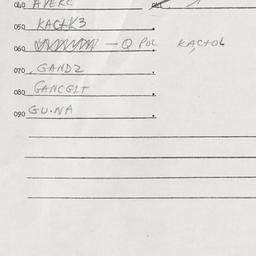 040 AVERC
050 KACTK3
060 — Q POL KACTOL
070 GANDZ
080 GANCGIT
090 GU.NA